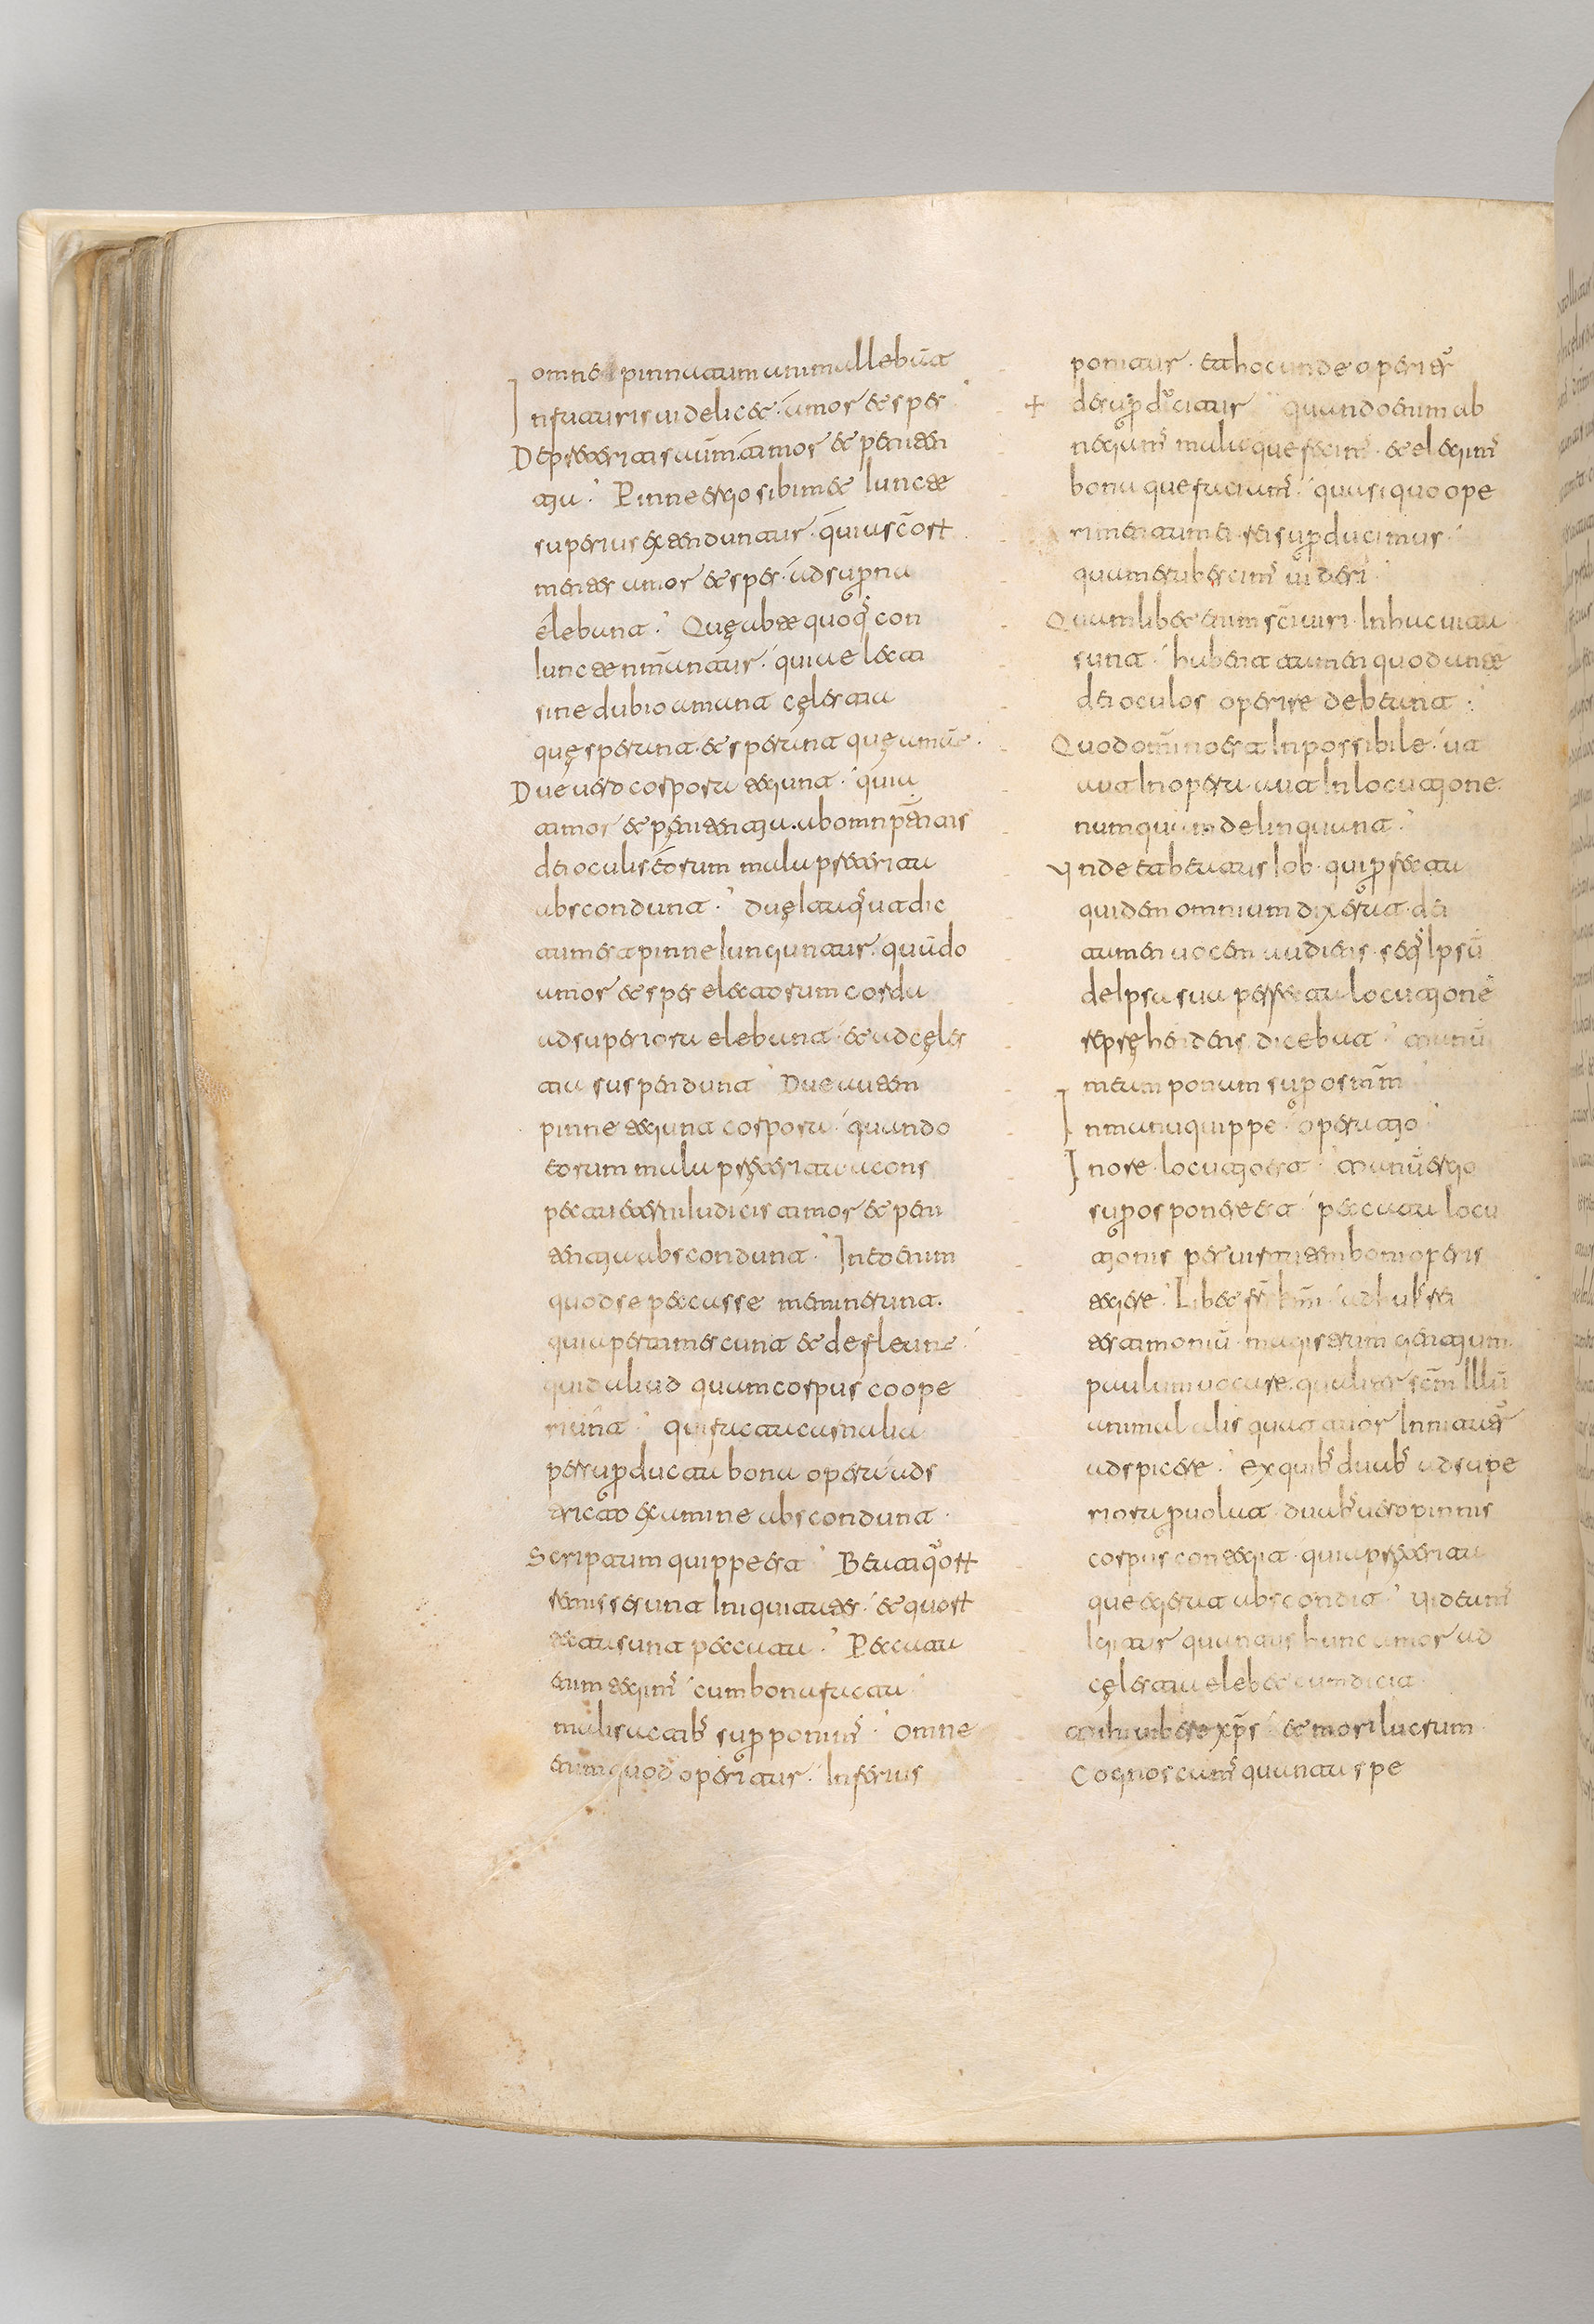 omnes pinnatum animal lebāt
In futuris uidelicet· amor et spes
De preteritis autem timor et peniten
tia· Pinne ergo sibimet iuncte
superius extenduntur· quia sc̄orum
mentes amor et spes· ad superna
elebunt· Quę abte quoq; con
iuncte nmnantur· qui a electi
sine dubio amant cęlestia
quę sperant· et sperant quę amāt·
Due uero corpora tegunt· quia
timor et penitentia· ab omnip̄tentis
dei oculis eorum mala preterita
abscondunt· Duę itaq; ut dic
tum est pinne iunguntur· quādo
amor et spes electorum corda
ad superiora elebant· et ad cęles
tia suspendunt· Due autem
pinne tegunt corpora· quando
eorum mala pręterita a cons
pectu eterni iudicis timor et peni
tentia abscondunt· In eo enim
quod se peccasse meminerunt·
quia pertimescunt et defleunt·
quid aliud quam corpus coope
riunt· qui facta carnalia
per superducta bona opera ads
tricto examine abscondunt·
Scriptum quippe est· Beati quor̄
remisse sunt iniquitates· et quor̄
tecta sunt peccata· Peccata
enim tegim; cum bona facta
malis actib; supponim;· Omne
enim quod operitur· inferius
ponitur· et hoc unde operitur
desuper ducitur quando enim ab
negam; mala que fecim;· et elegim;
bona que facim;· quasi quo ope
rimentum ei rei superducimus·
quam erubescim; uideri·
Quamlibet enim sc̄i uiri in hac uita
sunt· habent tamen quod ante
dei oculos operire debeant·
Quod omnino est inpossibile· ut
aut in opera· aut in locutione
numquam delinquant·
Unde et beatus Iob· qui perfecta
quidem omnium dixerat· dei
tamen uocem audiens· seq; ipsū
de ipsa sua perfecta locutione
repręhendens dicebat· manū
meam ponam super os mm̄
In manu quippe· operatio
In ore· locutio est· manū ergo
super os ponere est· peccata locu
tionis per uirtutem boni operis
tegere· Libet
testimoniū· magistrum gentium
paulum uocare· qualiter sc̄m illū
animal alis quattuor in nitatur
adspicere· Ex quib; duab; ad supe
riora prouolat· duab; uero pinnis
corpus contegit· quia pręterita
que egerat abscondit· Videam;
igitur quantus hunc amor ad
cęlestia elebet cum dicit·
mihi uibere xp̄s· et mori lucrum·
Cognoscam; quanta spe